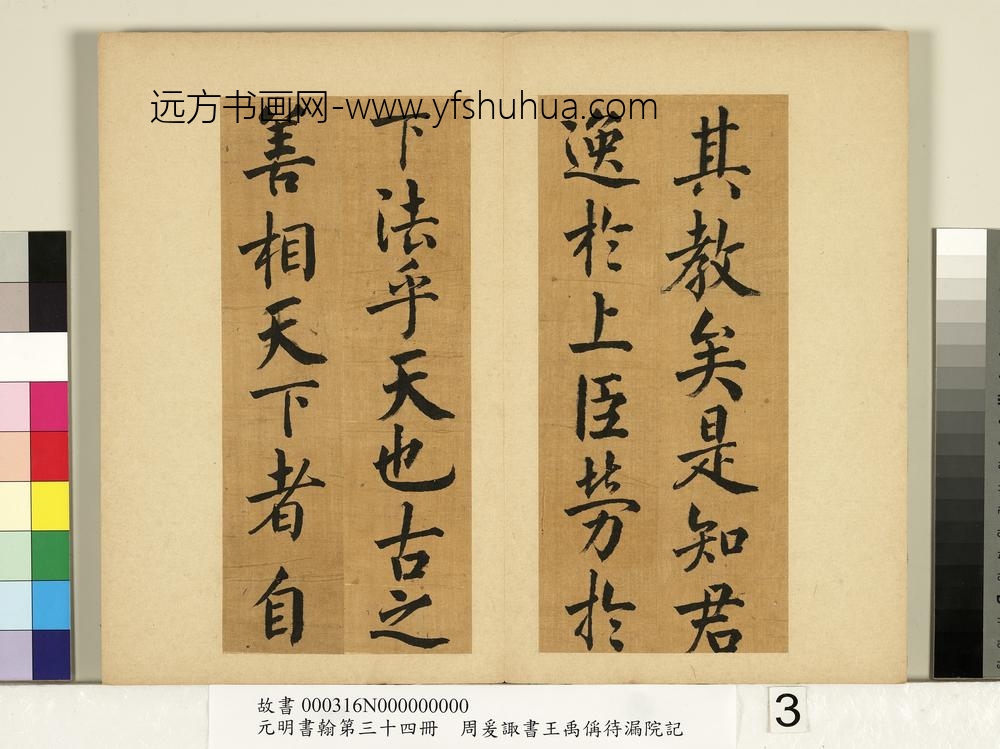 远方书画网-www.yfshuhua.com
其教矣是知君
逸於上臣劳於
下法乎天也古之
善相天下者自
故書 000316N000000000
元明書翰第三十四冊 周爰諏書王禹偁待漏院記
3